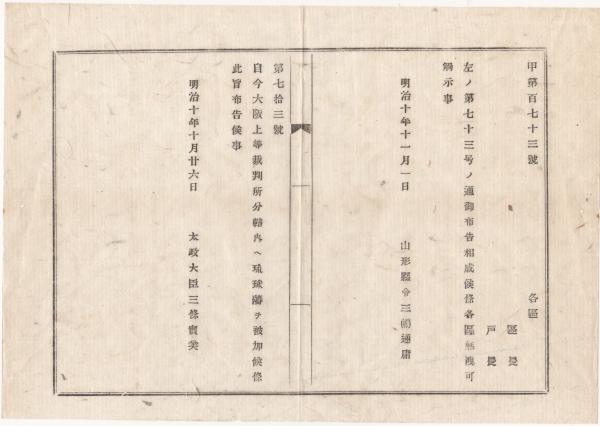 甲第百七十三號
各區
區長
戸長
左ノ第七十三号ノ通御布告相成候條各區無洩可
觸示事
明治十年十一月一日
山形縣令三島通庸
第七拾三號
自今大阪上等裁判所分轄內ヘ琉球藩ヲ被加候條
此旨布告候事
明治十年十月廿六日
太政大臣三條實美